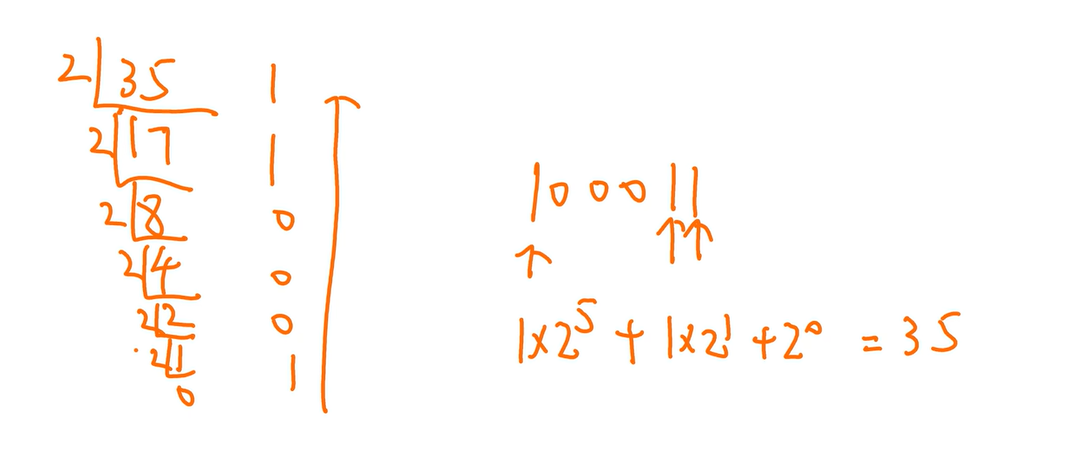 2 35 1
2 17 1
2 8 0
2 4 0
2 2 0
2 1 1
0
100011
1×2⁵ + 1×2¹ + 2⁰ = 35